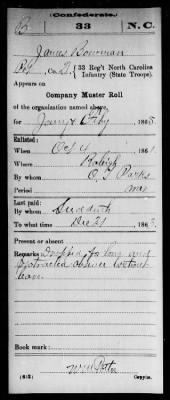 (Confederate.)
B 33 N.C.
James Bowman
Co. D, 33 Reg't North Carolina
Infantry (State Troops).
Appears on
Company Muster Roll
of the organization named above,
for Jany & Feby , 1865.
Enlisted:
When Oct 4 , 186
Where Raleigh
By whom O. J. Parks
Period war
Last paid:
By whom Sudderth
To what time Dec 31 , 186
Present or absent
Remarks: Dropped for long and
protracted absence without
leave.
Book mark:
(642)
Copyist.